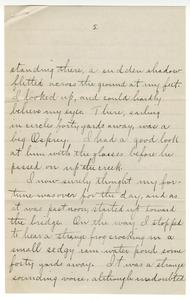 5.
standing there, a sudden shadow
flitted across the ground at my feet.
I looked up, and could hardly
believe my eyes. There, sailing
in circles forty yards away, was a
big Osprey. I had a good look
at him with the glasses before he
passed on up the creek.
I now surely thought my for-
tune was over for the day, and as
it was past noon, started up toward
the bridge. On the way, I stopped
to hear a strange frog croaking in a
small sedgy rain water pond some
forty yards away. It was a strange
sounding voice, although undoubted